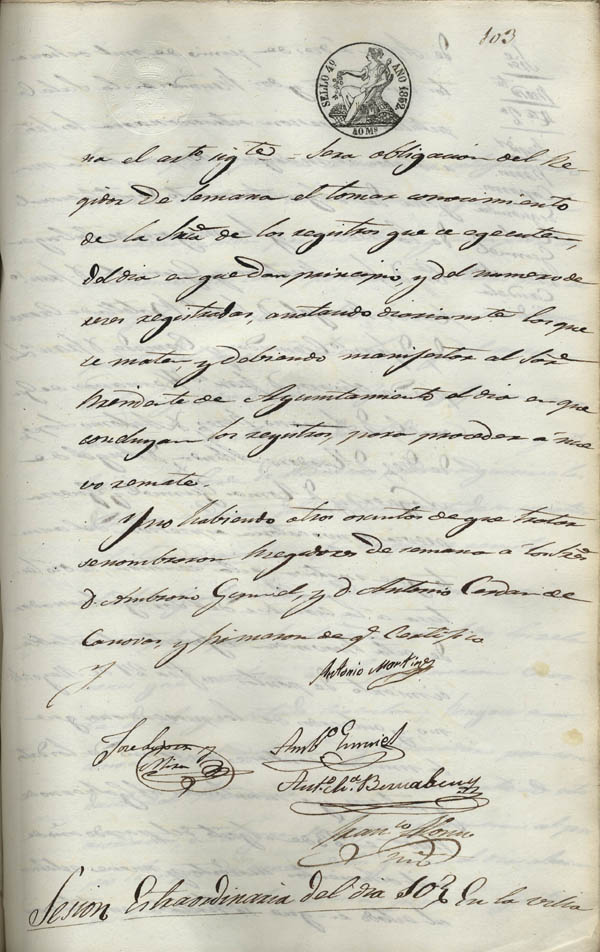 103
SELLO 4º AÑO 1852
40 Ms
na el arte sigte = Sera obligacion del Re-
gidor de Semana el tomar conocimiento
de la Sria de los registros que se egecuten,
del dia en que dan principio, y del numero de
reses registradas, anotando diariamte los que
se maten, y debiendo manifestar al Sor
Presidente de Ayuntamiento el dia en que
concluyan los registros, para proceder á nue
vo remate.
Y no habiendo otros asuntos de que tratar
se nombraron Regidores de semana a los Sres
D. Ambrosio Gumiel, y D. Antonio
Canovas, y firmaron de q. Certifico
Antonio Martinez
Jose Lopez y
Ambo Gumiel
Anto Bernabeu
Franco
Sesion Estraordinaria del dia 10 En la villa